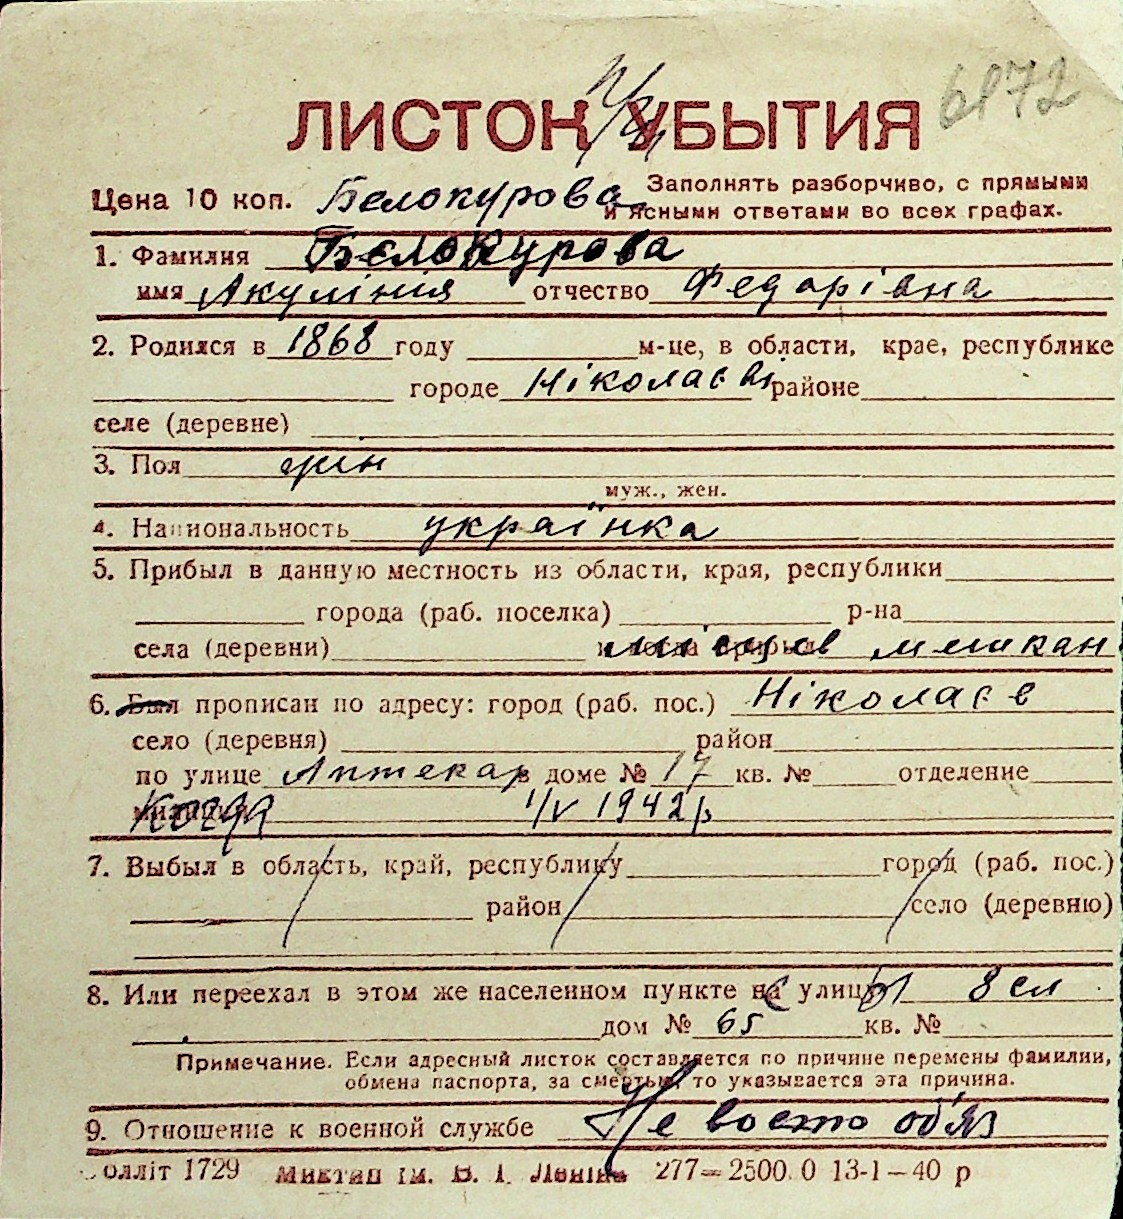 6972
ЛИСТОК УБЫТИЯ
Цена 10 коп. Белокурова Заполнять разборчиво, с прямыми
и ясными ответами во всех графах.
1. Фамилия Бєлокурова
имя Акулінія отчество Федарівна
2. Родился в 1868 году м-це, в области, крае, республике
городе Ніколаєві районе
селе (деревне)
3. Пол жін
муж., жен.
4. Национальность українка
5. Прибыл в данную местность из области, края, республики
города (раб. поселка) р-на
села (деревни) місцев мешкан
6. Был прописан по адресу: город (раб. пос.) Ніколаєв
село (деревня) район
по улице Аптекар в доме № 17 кв. № отделение
милиции Когда 1/V 1942 р
7. Выбыл в область, край, республику город (раб. пос.)
район село (деревню)
8. Или переехал в этом же населенном пункте на улицу 8 сл
дом № 65 кв. №
Примечание. Если адресный листок составляется по причине перемены фамилии,
обмена паспорта, за смертью, то указывается эта причина.
9. Отношение к военной службе Не воєно об'яз
олліт 1729 Миктип ім. В. І. Леніна 277—2500.0 13-1—40 р